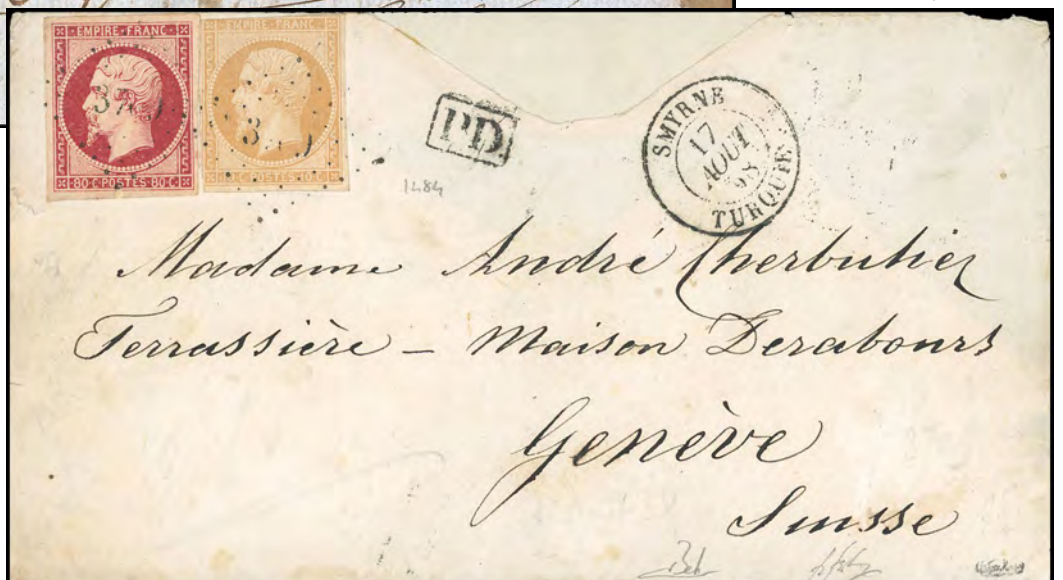 EMPIRE FRANC
80 C POSTES 80 C
EMPIRE FRANC
10 C POSTES 10 C
PD
SMYRNE
17
AOUT
58
TURQUIE
1484
Madame André Cherbuliez
Terrassière – Maison Derabours
Genève
Suisse